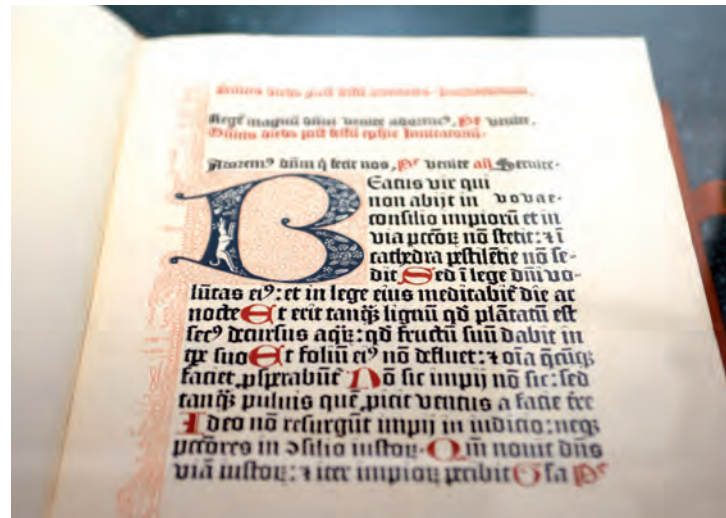 diebus post festū
Regē magnū dñm venite adoremꝰ, Pꝰ venite.
diebus post festū ephie Inuitatoriū.
Adoremꝰ dñm q̄ fecit nos, Pꝰ venite añ Seruite.
BEatus vir qui
non abijt in evovae.
consilio impioꝝ et in
via pctōꝝ nō stetit: ⁊ ī
cathedra pestilētie nō se-
dit Sed ī lege dñi vo-
lūtas eiꝰ: et in lege eius meditabit̄ die ac
nocte Et erit tanqꝫ lignū qd̄ plātatū est
secꝰ decursus aqꝝ: qd̄ fructū suū dabit in
tp̄e suo Et foliū eiꝰ nō defluet: ⁊ oīa q̄cūqꝫ
faciet ꝓsꝑabūt̄ Nō sic impij nō sic: sed
tanqꝫ puluis quē ꝓicit ventus a facie tr̄e
Ideo nō resurgūt impij in iudicio: neqꝫ
pctōres in ↄsilio iustoꝝ. Qm̄ nouit dñs
viā iustoꝝ: ⁊ iter impioꝝ peribit Gl̄a Pꝰ